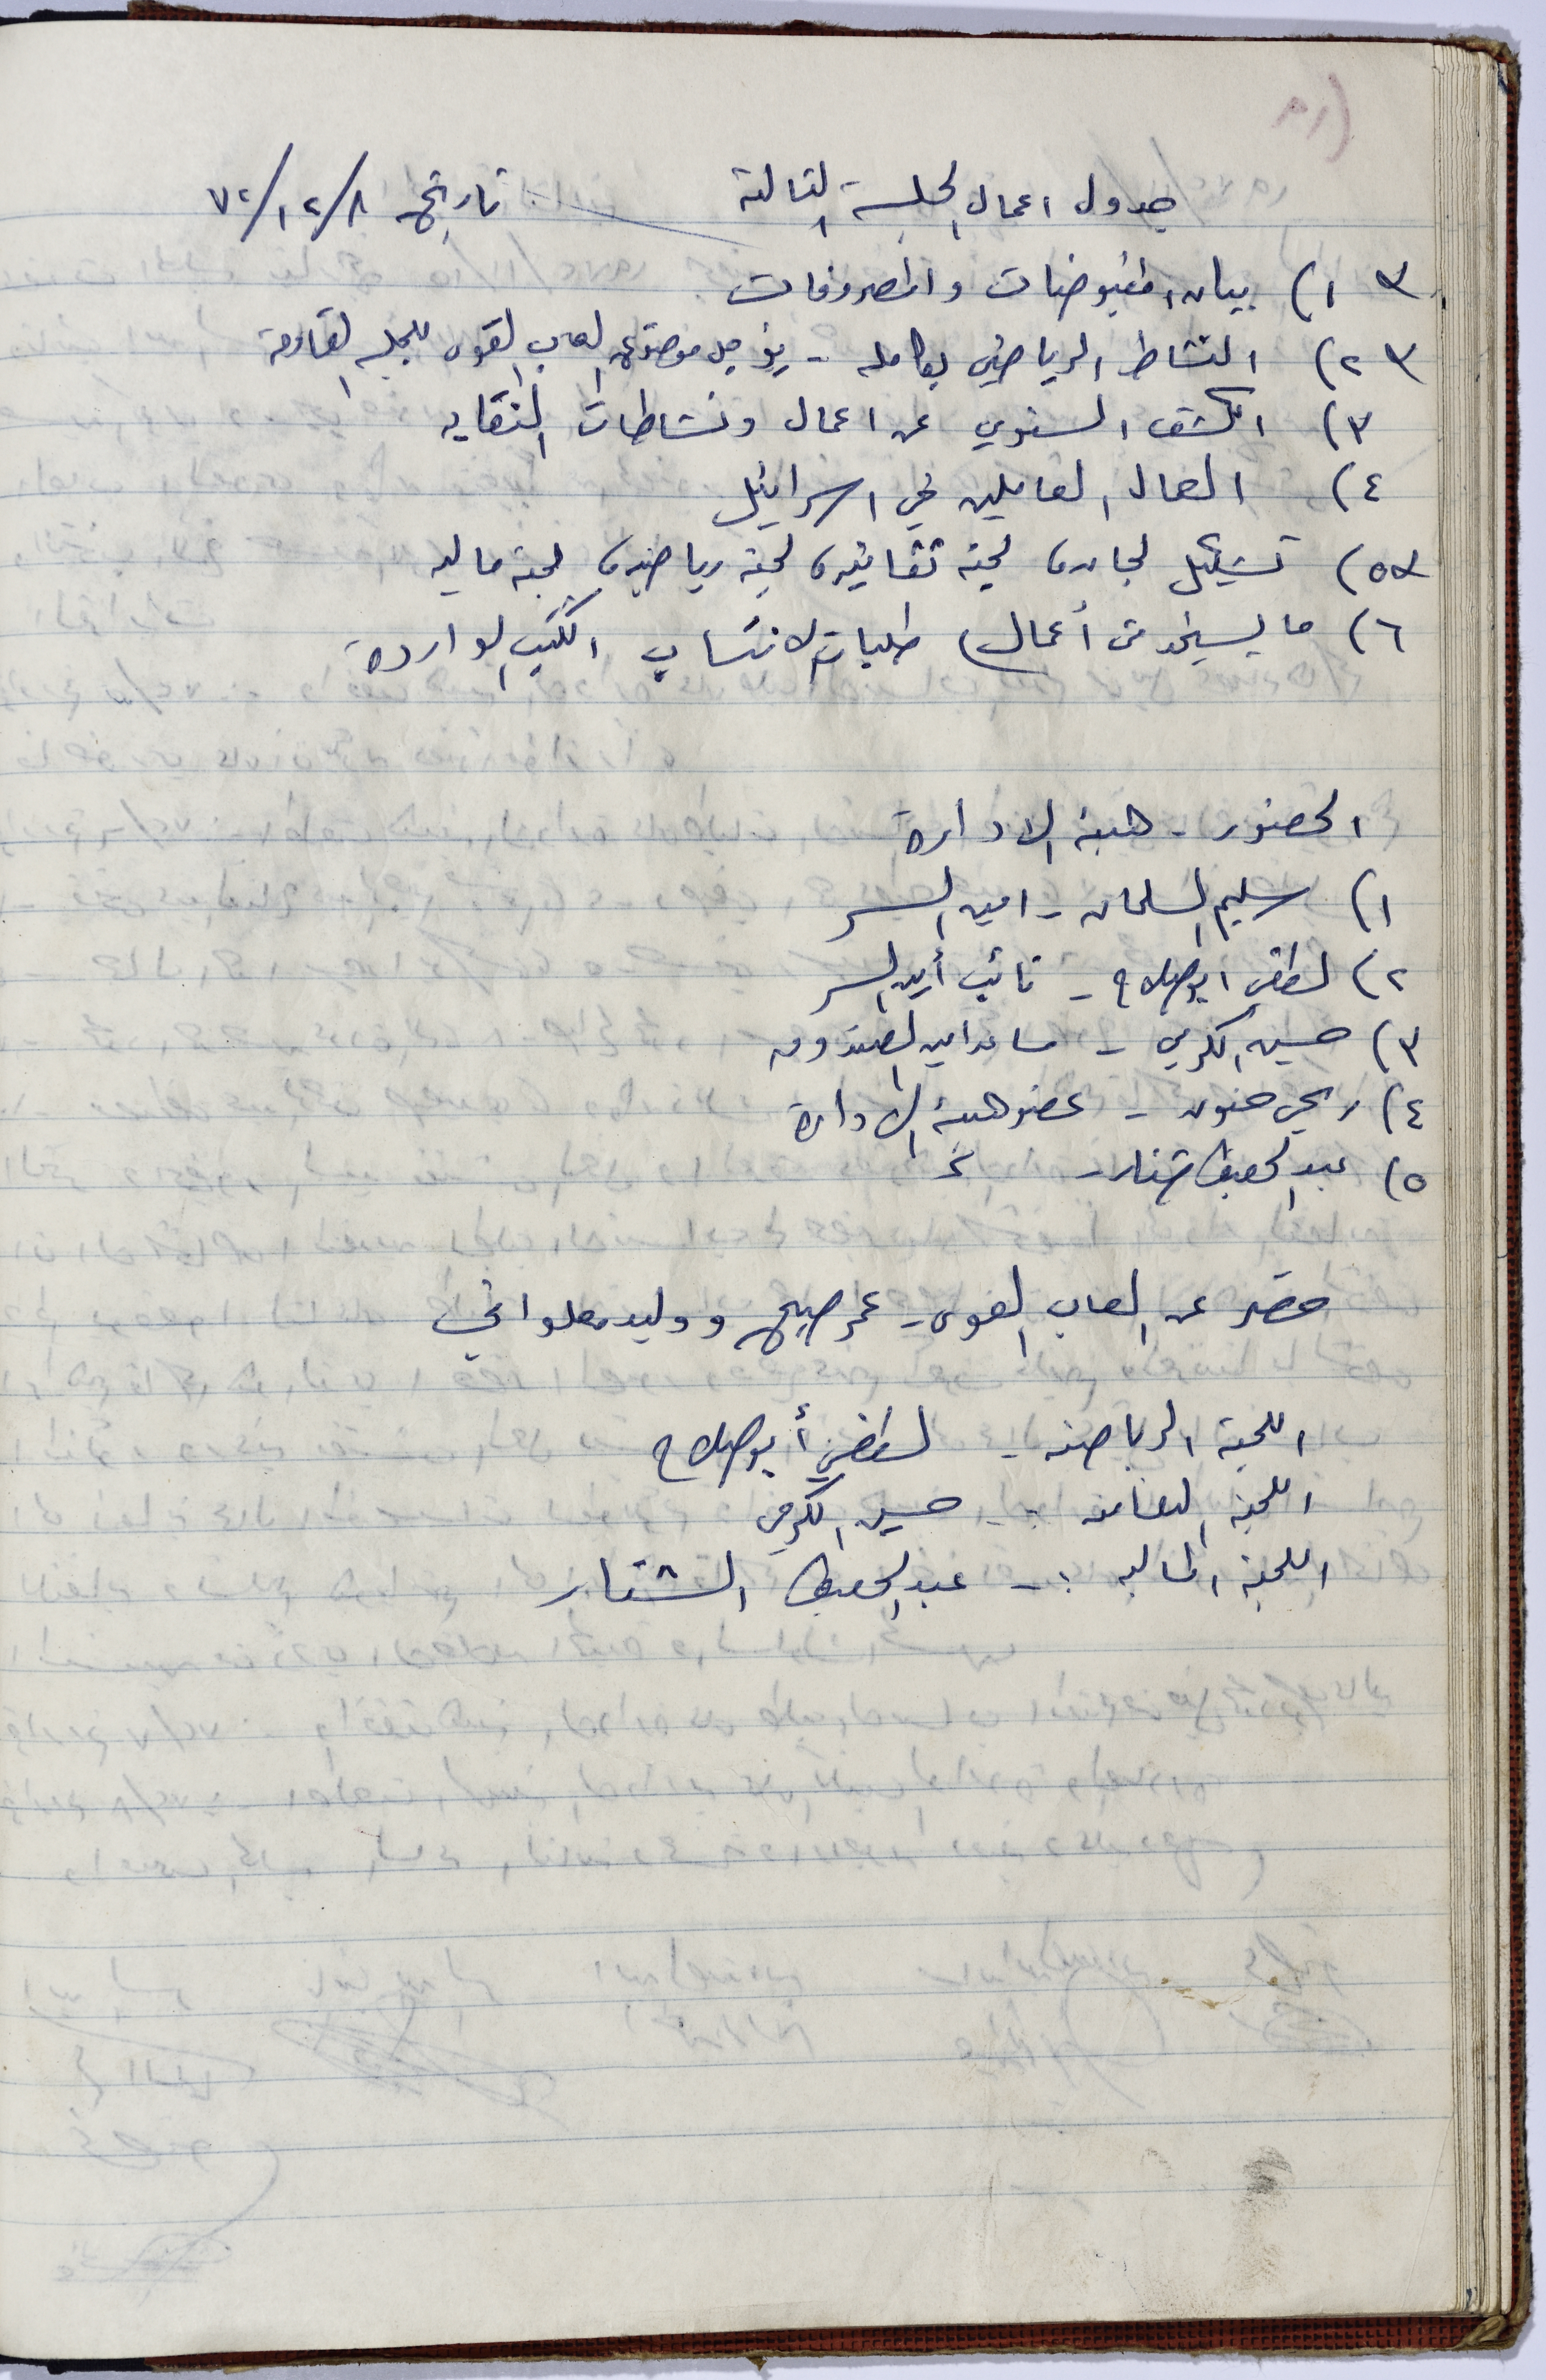 جدول اعمال الجلسة الثالثة تاريخ ٧٢/١٢/٨
١) بيان المقبوضات والمصروفات
٢) النشاط الرياضي بكامله - يؤجل موضوع العاب القوى للجلسه القادمة
٣) الكشف السنوي عن اعمال ونشاطات النقابه
٤) العمال العاملين في اسرائيل
٥) تشكيل لجان، لجنة ثقافية، لجنة رياضية، لجنة ماليه
٦) ما يستجد من أعمال، طلبات الانتساب الكتب الواردة
الحضور - هيئة الادارة
١) سليم السلمان - امين السر
٢) لطفي ابو صلاح - نائب أمين السر
٣) حسين الكرمي - مساعد امين الصندوق
٤) ربحي حنون - عضو هيئة الادارة
٥) عبد الحفيظ اشتار -
حضر عن العاب القوى - عمر صبيح ووليد معلواني
اللجنة الرياضية - لطفي أبو صلاح
اللجنة الثقافية :- حسين الكرمي
اللجنة المالية :- عبد الحفيظ الشتار